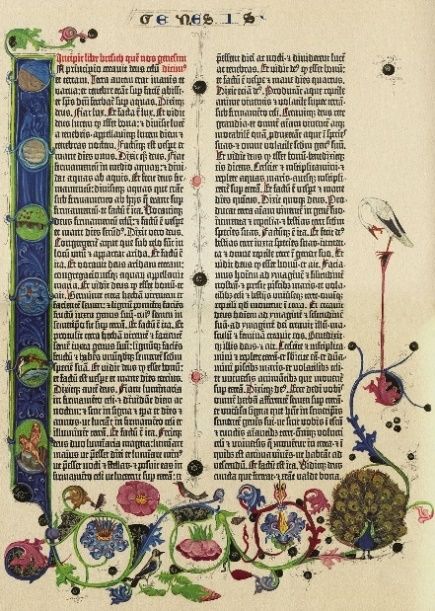 GENESIS
Incipit liber bresith quē nos genesim
A principio creauit deus celū dicimꝰ
et terram. Terra autem erat inanis et
vacua: et tenebre erāt sup faciē abissi:
et spūs dñi ferebatur sup aquas. Dixitqꝫ
deus. Fiat lux. Et facta ē lux. Et vidit
deus lucem qd esset bona: et diuisit lucem
a tenebris appellauitqꝫ lucem diem et
tenebras noctem. Factūqꝫ est vespe et
mane dies unus. Dixit qꝫ deus. Fiat
firmamentū in medio aquaꝝ: et diui-
dat aquas ab aquis. Et fecit deus fir-
mamentū: diuisitqꝫ aquas que erāt
sub firmamento ab hijs q erant sup
firmamentū: et factū ē ita. Vocauitqꝫ
deus firmamentū celū: et factū ē vespe
et mane dies secūdꝰ. Dixit vero deus.
Congregent aque que sub celo sūt in
locū unū et appareat arida. Et factū ē
ita. Et vocauit deus aridam terram:
cōgregacionesqꝫ aquaꝝ appellauit
maria. Et vidit deus qd esset bonū et
ait. Germinet terra herbā virentem et
facientē semen: et lignū pomiferū faciēs
fructū iuxta genus suū cuiꝰ semen in
semetipo sit sup terrā. Et factū ē ita. Et
protulit terra herbā virentē et facientē
semē iuxta genus suū: lignūqꝫ faciēs
fructū et habēs unūqdqꝫ semētē scdm
speciē suā. Et vidit deus qd esset bonū:
et factū est vespe et mane dies tercius.
Dixitqꝫ deus. Fiant luminaria
in firmamēto celi et diuidāt diem ac
noctem: et sint in signa et tpa et dies et
annos ut luceāt in firmamēto celi et
illuminēt terrā. Et factū ē ita. Fecitqꝫ
deus duo luminaria magna: luminare
maius ut pesset diei et luminare minꝰ
ut pesset nocti et stellas et posuit eas in
firmamēto celi ut lucerent sup terrā: et
pessent diei ac nocti et diuiderent lucē
ac tenebras. Et vidit deꝰ qd esset bonū:
et factū ē vespe et mane dies quartus.
Dixit eciā deꝰ. Producant aque reptile
anime viventis et volatile super terrā
sub firmamēto celi. Creauitqꝫ deus cete
grandia et omnē aīam viventem atqꝫ
motabilē quā pduxerāt aque ī species
suas et omne volatile scdm genꝰ suū.
Et vidit deus qd esset bonū: bndixitqꝫ
eis dicens. Crescite et mltiplicamini et
replete aquas maris auesqꝫ mltipli-
cent sup terrā. Et factū ē vespe et mane
dies quintus. Dixit quoqꝫ deus. Pro-
ducat terra aīam viventem in gene suo
iumenta et reptilia et bestias terre scdm
species suas. Factūqꝫ ē ita. Et fecit deꝰ
bestias terre iuxta species suas iumen-
ta et omne reptile terre ī genere suo. Et
vidit deus qd esset bonū et ait. Facia-
mus hoīem ad ymaginē et silitudinē
nostrā et presit piscibꝰ maris et vola-
tilibꝰ celi et bestijs uniuseqꝫ terre omīqꝫ
reptili qd mouet ī terra. Et creauit deꝰ
hoīem ad ymaginē et silitudinē
suā ad ymaginem dei creauit illū mascu-
lū et feminā creauit eos. Bndixitqꝫ
illis deus et ait. Crescite et mltiplicamini
et replete terrā et subicite eā et domina-
mini piscibꝰ maris et volatilibꝰ celi
et uniuersis animātibꝰ que mouentur
sup terrā. Dixitqꝫ deꝰ. Ecce dedi vobis
omnē herbā afferentē semen sup terrā
et uniūsa ligna que hīt in semetipis
semētē genis sui ut sint vobis ī escā
et cunctis aīantibꝰ terre omīqꝫ volucri
celi et uniuersis q mouetur in terra et ī
quibꝰ est anima vivēs ut habeāt ad
vescendū. Et factū est ita. Viditqꝫ deus
cuncta que fecerat et erāt valde bona.